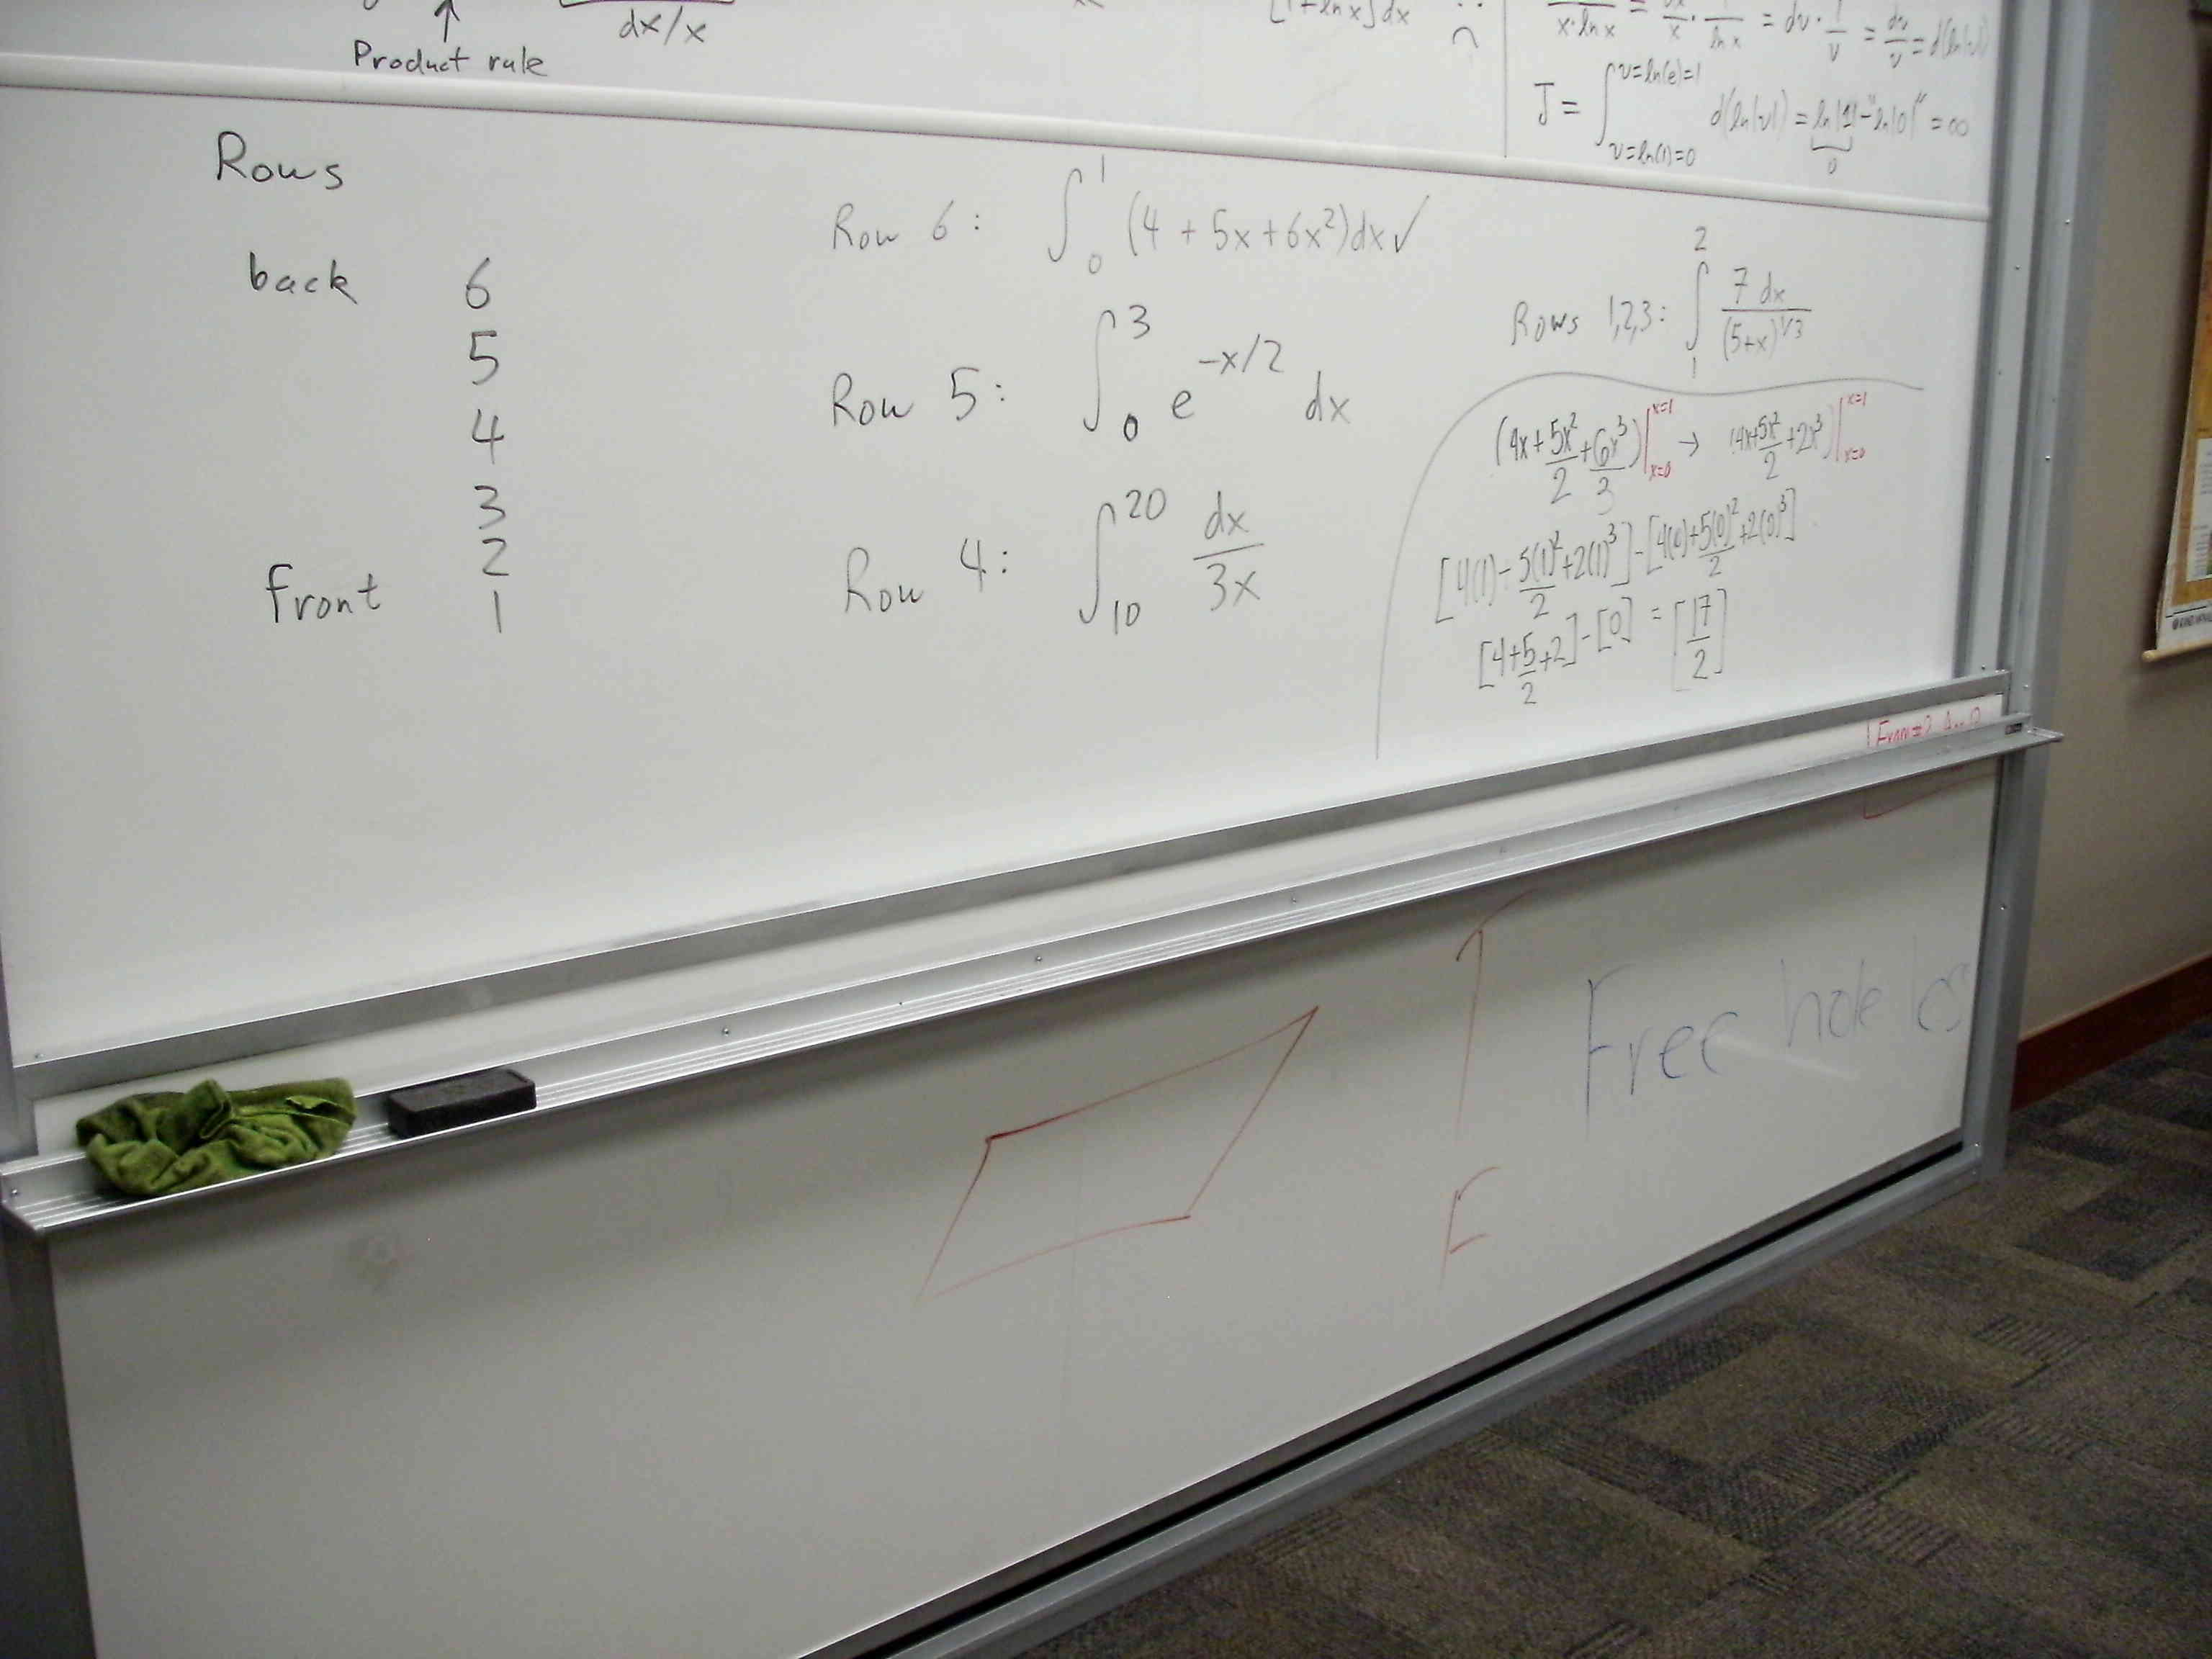 Product rule
dx/x
[1+ln x]dx
x·ln x = dx/x · 1/ln x = dv · 1/v = dv/v = d(ln|v|)
J = ∫_{v=ln(1)=0}^{v=ln(e)=1} d(ln|v|) = ln|1| - "ln|0|" = ∞
0
Rows
back 6
5
4
3
2
front 1
Row 6: ∫_0^1 (4 + 5x + 6x²)dx ✓
Row 5: ∫_0^3 e^{-x/2} dx
Row 4: ∫_{10}^{20} dx/3x
Rows 1,2,3: ∫_1^2 7 dx/(5+x)^{1/3}
(4x + 5x²/2 + 6x³/3)|_{x=0}^{x=1} → (4x + 5x²/2 + 2x³)|_{x=0}^{x=1}
[4(1) + 5(1)²/2 + 2(1)³] - [4(0) + 5(0)²/2 + 2(0)³]
[4 + 5/2 + 2] - [0] = [17/2]
Free hole
F